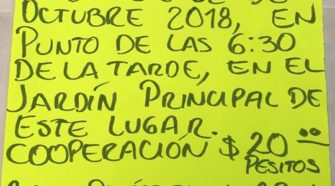 OCTUBRE 2018, EN
PUNTO DE LAS 6:30
DE LA TARDE, EN EL
JARDÍN PRINCIPAL DE
ESTE LUGAR.
COOPERACIÓN $ 20.00
PESITOS